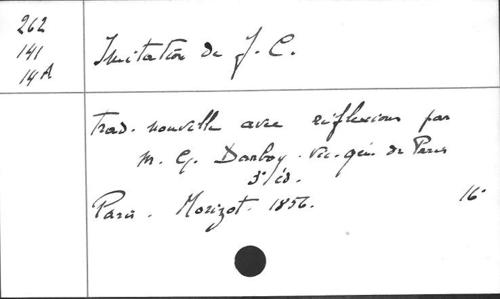 262
141
14A
Imitation de J. C.
Trad. nouvelle avec réflexions par
M. G. Darboy. vic. gén. de Paris
3e éd.
Paris. Morizot. 1856. 16°